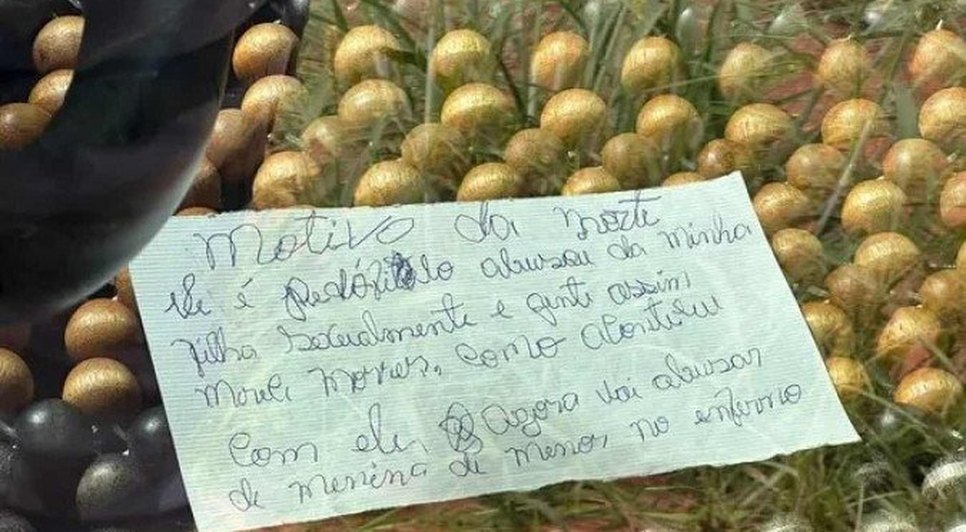 Motivo da morte
ele é pedófilo abusou da minha
filha sexualmente e gente assim
morrer, como aconteceu
com ele, Agora vai abusar
de menina de menor no enferno